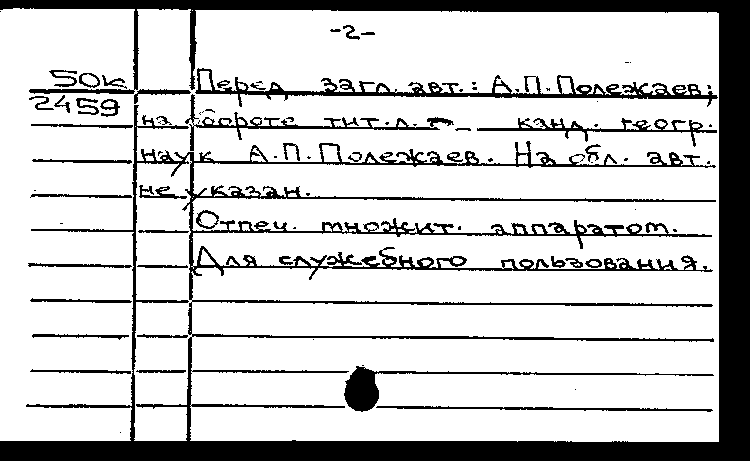 -2-
50к Перед загл. авт.: А.П.Полежаев;
2459 на обороте тит.л. - канд. геогр.
наук А.П.Полежаев. На обл. авт.
не указан.
Отпеч. множит. аппаратом.
Для служебного пользования.